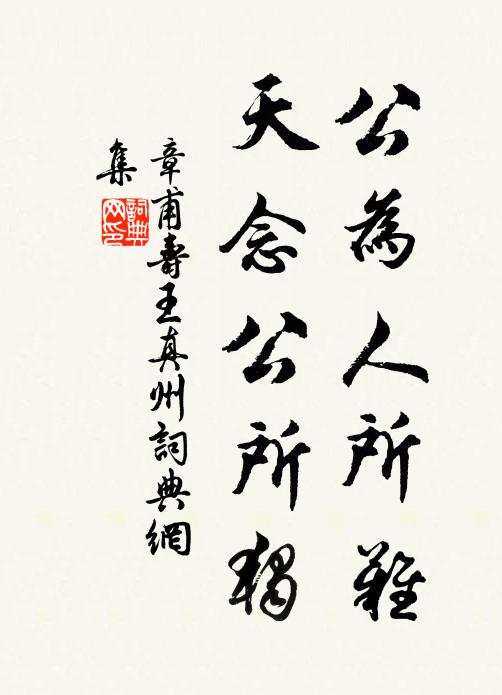 公為人所難
天念公所獨
章甫壽王真州詞典網
集
詞典網印